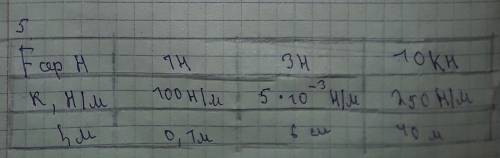 5.
F упр Н 1Н 3Н 10КН
К, Н/м 100Н/м 5·10⁻³ Н/м 250Н/м
м 0,1м 6 см 40 м